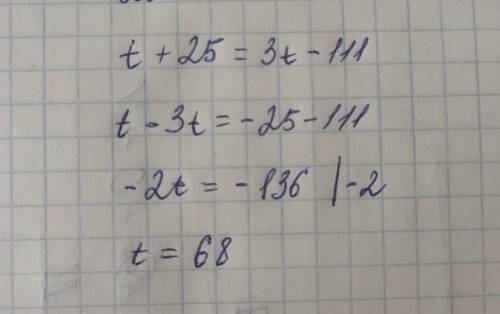 t + 25 = 3t - 111
t - 3t = - 25 - 111
- 2t = - 136 | -2
t = 68